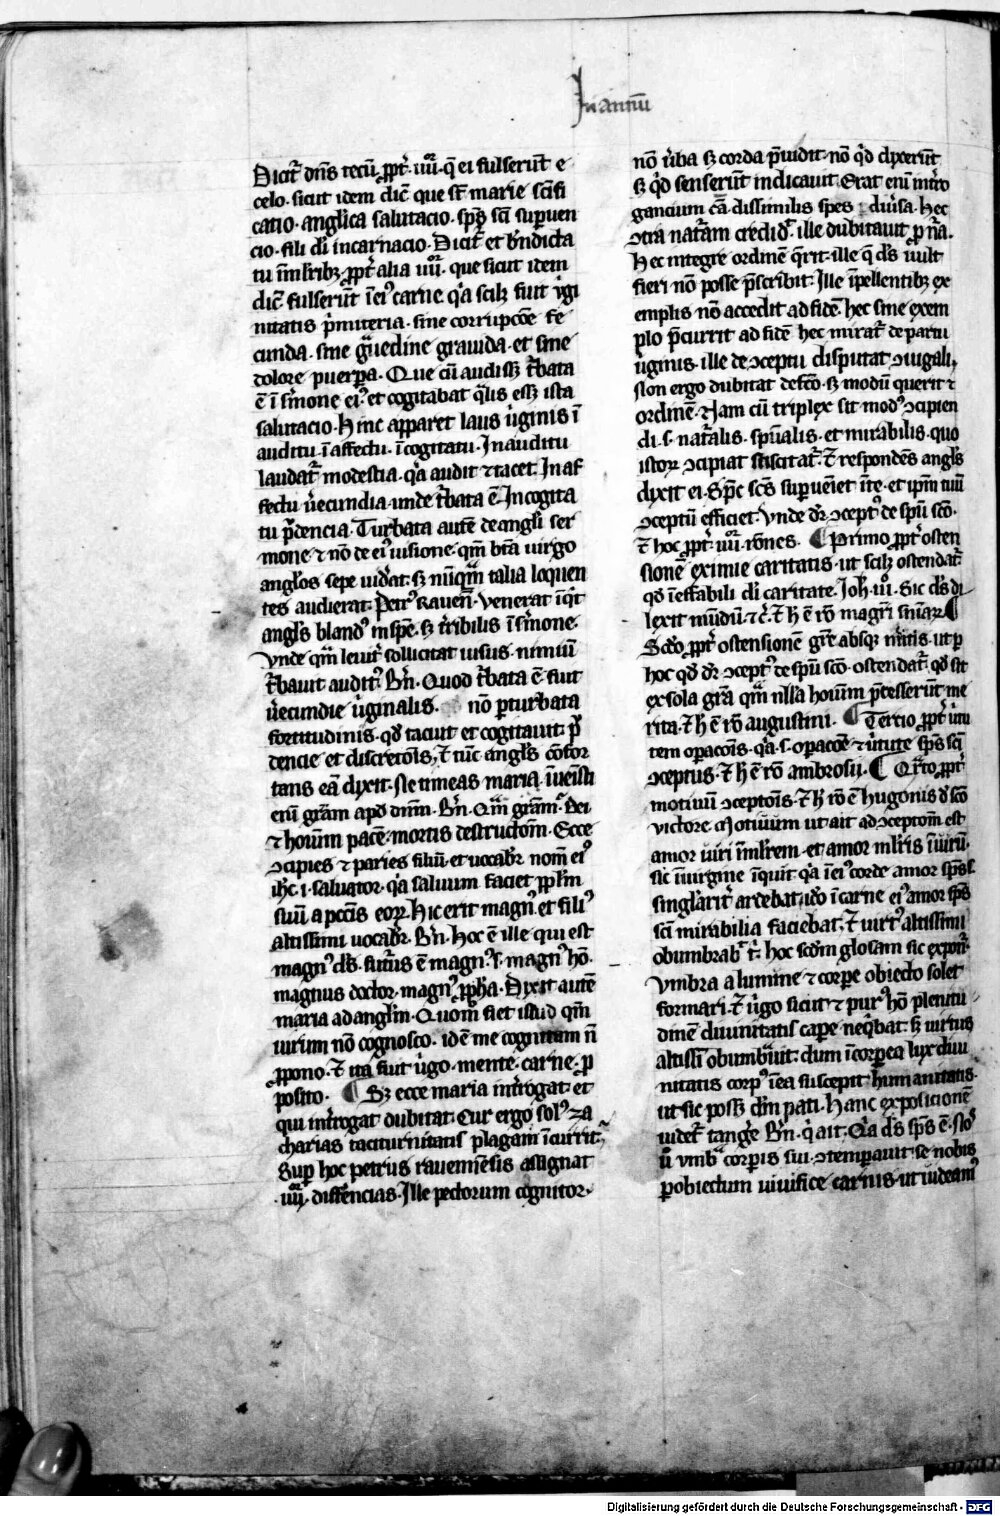 In annu̅
Dicit᷑ dn̅s tecu̅ ꝓpt᷑ . iiijor . q̅ ei fulseru̅t e
celo . sicut idem dic̅ que st̅ marie sc̅ifi
catio . anglica salutacio . sp̅s sc̅i supuen
cio . filii di̅ incarnacio . Dicit᷑ et bn̅dicta
tu i̅ mlr̅ibꝫ . ꝓpt᷑ alia iiijor . que sicut idem
dic̅ fulseru̅t i̅ eiꝰ carne . q̓a scilꝫ fuit v̓gi
nitatis p̓miceria . sine corrupco̅e fe
cunda . sine g̓uedine grauida . et sine
dolore puerpa . Que cu̅ audissꝫ t᷑bata
e̅ i̅ s̓mone eiꝰ et cogitabat q̓lis essꝫ ista
salutacio . Hinc apparet laus v̓ginis i̅
auditu . i̅ affectu . i̅ cogitatu . In auditu
laudat᷑ modestia . q̓a audit ⁊ tacet . In af
fectu v̓ecundia . unde t᷑bata e̅ . In cogita
tu p̓dencia . Turbata aute̅ de angli ser
mone ⁊ no̅ de eiꝰ uisione . qm̅ bt̅a uirgo
anglos sepe uid̓at . sꝫ nu̅q̓m talia loquen
tes audierat . Petrꝰ Rauen̅ . Venerat iq̓t
angls blandꝰ in spe̅ . sꝫ t᷑ribilis i̅ s̓mone .
Vnde qm̅ leuit᷑ sollicitat uisus . nimiu̅
t᷑bauit auditꝰ . Bn̅ . Quod t᷑bata e̅ fuit
v̓ecundie v̓ginalis . no̅ pturbata
fortitudinis . qd̓ tacuit et cogitauit . p̓
dencie et discreto̅is . ⁊ tu̅c angls co̅for
tans ea̅ dixit . Ne timeas maria . i̅ueni̅sti
eni̅ gra̅m apd̓ dnm̅ . Bn̅ . Qm̅ gra̅m . Dei
⁊ hoi̅um pace̅ . mortis destructo̅m . Ecce
ꝯcipies ⁊ paries filiu̅ et uocabr̅ nom̅ eiꝰ
ih̅c . i . saluator . q̓a saluum faciet ppl̅m
suu̅ a pcc̅is eoꝝ . Hic erit magnꝰ et filiꝰ
altissimi uocabr̅ . Bn̅ . Hoc e̅ ille qui est
magnꝰ ds̅ . futurus e̅ magnꝰ . s . magnꝰ ho̅ .
magnus doctor . magnꝰ ꝓph̅a . Dixit aute̅
maria ad anglm̅ . Quom̅ fiet istud qm̅
uirum no̅ cognosco . ide̅ me cognitum n̅
ꝓpono . ⁊ ita fuit v̓go . mente . carne . ꝓ
posito . ¶ Sꝫ ecce maria int᷑rogat . et
qui int᷑rogat dubitat . Cur ergo solꝰ za
charias taciturnitatis plagam i̅currit .
Sup hoc petrus rauennensis assignat
. iiijor . diffe̅rencias . Ille pectorum cognitor .
no̅ v̓ba sꝫ corda p̓uidit . no̅ qd̓ dixeru̅t
sꝫ qd̓ senseru̅t iudicauit . Erat eni̅ int᷑ro
gancium ca̅ dissimilis spes diu̓sa . Hec
ꝯtra nat᷑am credidꝰ . ille dubitauit ꝓ na̅ .
Hec integre ordine̅ q̓rit . ille q̓ ds̅ uult
fieri no̅ posse p̓scribit . Ille i̅pellentibꝫ ex
emplis no̅ accedit ad fide̅ . hec sine exem
plo p̓currit ad fide̅ hec mirat᷑ de partu
v̓ginis . ille de ꝯceptu disputat ꝯiugali .
No̅ ergo dubitat de fc̅o . sꝫ modu̅ querit ⁊
ordine̅ . Nam cu̅ triplex sit modꝰ ꝯcipien
di . s . nat᷑alis . spu̅alis . et mirabilis . quo
istoꝝ ꝯcipiat sciscitat᷑ . ⁊ responde̅s angls
dixit ei . Sp̅c sc̅s supueniet i̅ te . et ipm̅ tuu̅
ꝯceptu̅ efficiet . Vnde dr̅ ꝯceptꝰ de spu̅ sc̅o .
⁊ hoc ꝓpt᷑ . iiijor . ro̅nes . ¶ Primo ꝓpt᷑ osten
sione̅ eximie caritatis . ut scilꝫ ostendat᷑
qd̓ ineffabili di̅ caritate . Joh̅ . iijo . Sic ds̅ di
lexit mu̅du̅ . ⁊c̅ . ⁊ h̅ e̅ ro̅ magri̅ sn̅iaꝝ ¶
Sc̅do ꝓpt᷑ ostensione̅ gr̅e absqꝫ m̓itis . ut p
hoc qd̓ dr̅ ꝯceptꝰ de spu̅ sc̅o ostendat᷑ . qd̓ sit
ex sola gr̅a qm̅ nlla hoi̅um p̓cesseru̅t me
rita . ⁊ h̅ e̅ ro̅ augustini . ¶ Tercio ꝓpt᷑ v̓tu
tem opaco̅is . q̓a . s . opaco̅e ⁊ v̓tute sp̅s sc̅i
ꝯceptus . ⁊ h̅ e̅ ro̅ ambrosii . ¶ Qrto ꝓpt᷑
motiuu̅ ꝯcepto̅is . ⁊ h̅ ro̅ e̅ hugonis d̓ sc̅o
victore . Motiuum ut ait ad ꝯcepto̅m est
amor uiri i̅ mlr̅em . et amor mlr̅is i̅ uiru̅ .
sic i̅ uirgine i̅quit q̓a i̅ eiꝰ corde amor sp̅s s̅
singlarit᷑ ardebat . ido̅ i̅ carne eiꝰ amor sp̅s
sc̅i mirabilia faciebat . ⁊ uirtꝰ altissimi
obumbrabꝰ t̓ . hoc sc̅dm glosam sic expon̅r .
Vmbra a lumine ⁊ corpe obiecto solet
formari . ⁊ v̓go sicut ⁊ purꝰ ho̅ plenitu
dine̅ diuinitatis cape neq̓bat . sꝫ uirtus
altissi̅ obumb̓uit . dum i̅corporea lux diui
nitatis corpꝰ i̅ ea suscepit humanitatis .
ut sic possꝫ dm̅ pati . Hanc exposicione̅
uidet᷑ tange̅ Bn̅ . q̓ ait . Q̓a ds̅ sp̅s e̅ . nos
u̓ vmb̓ corporis sui . ꝯtempauit se nobis
p obiectum uiuifice carnis . ut uideamꝰ
Digitalisierung gefördert durch die Deutsche Forschungsgemeinschaft - DFG